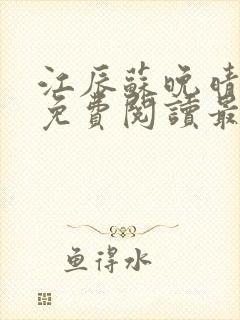 江辰蘇晚晴
免費閱讀最
鱼得水